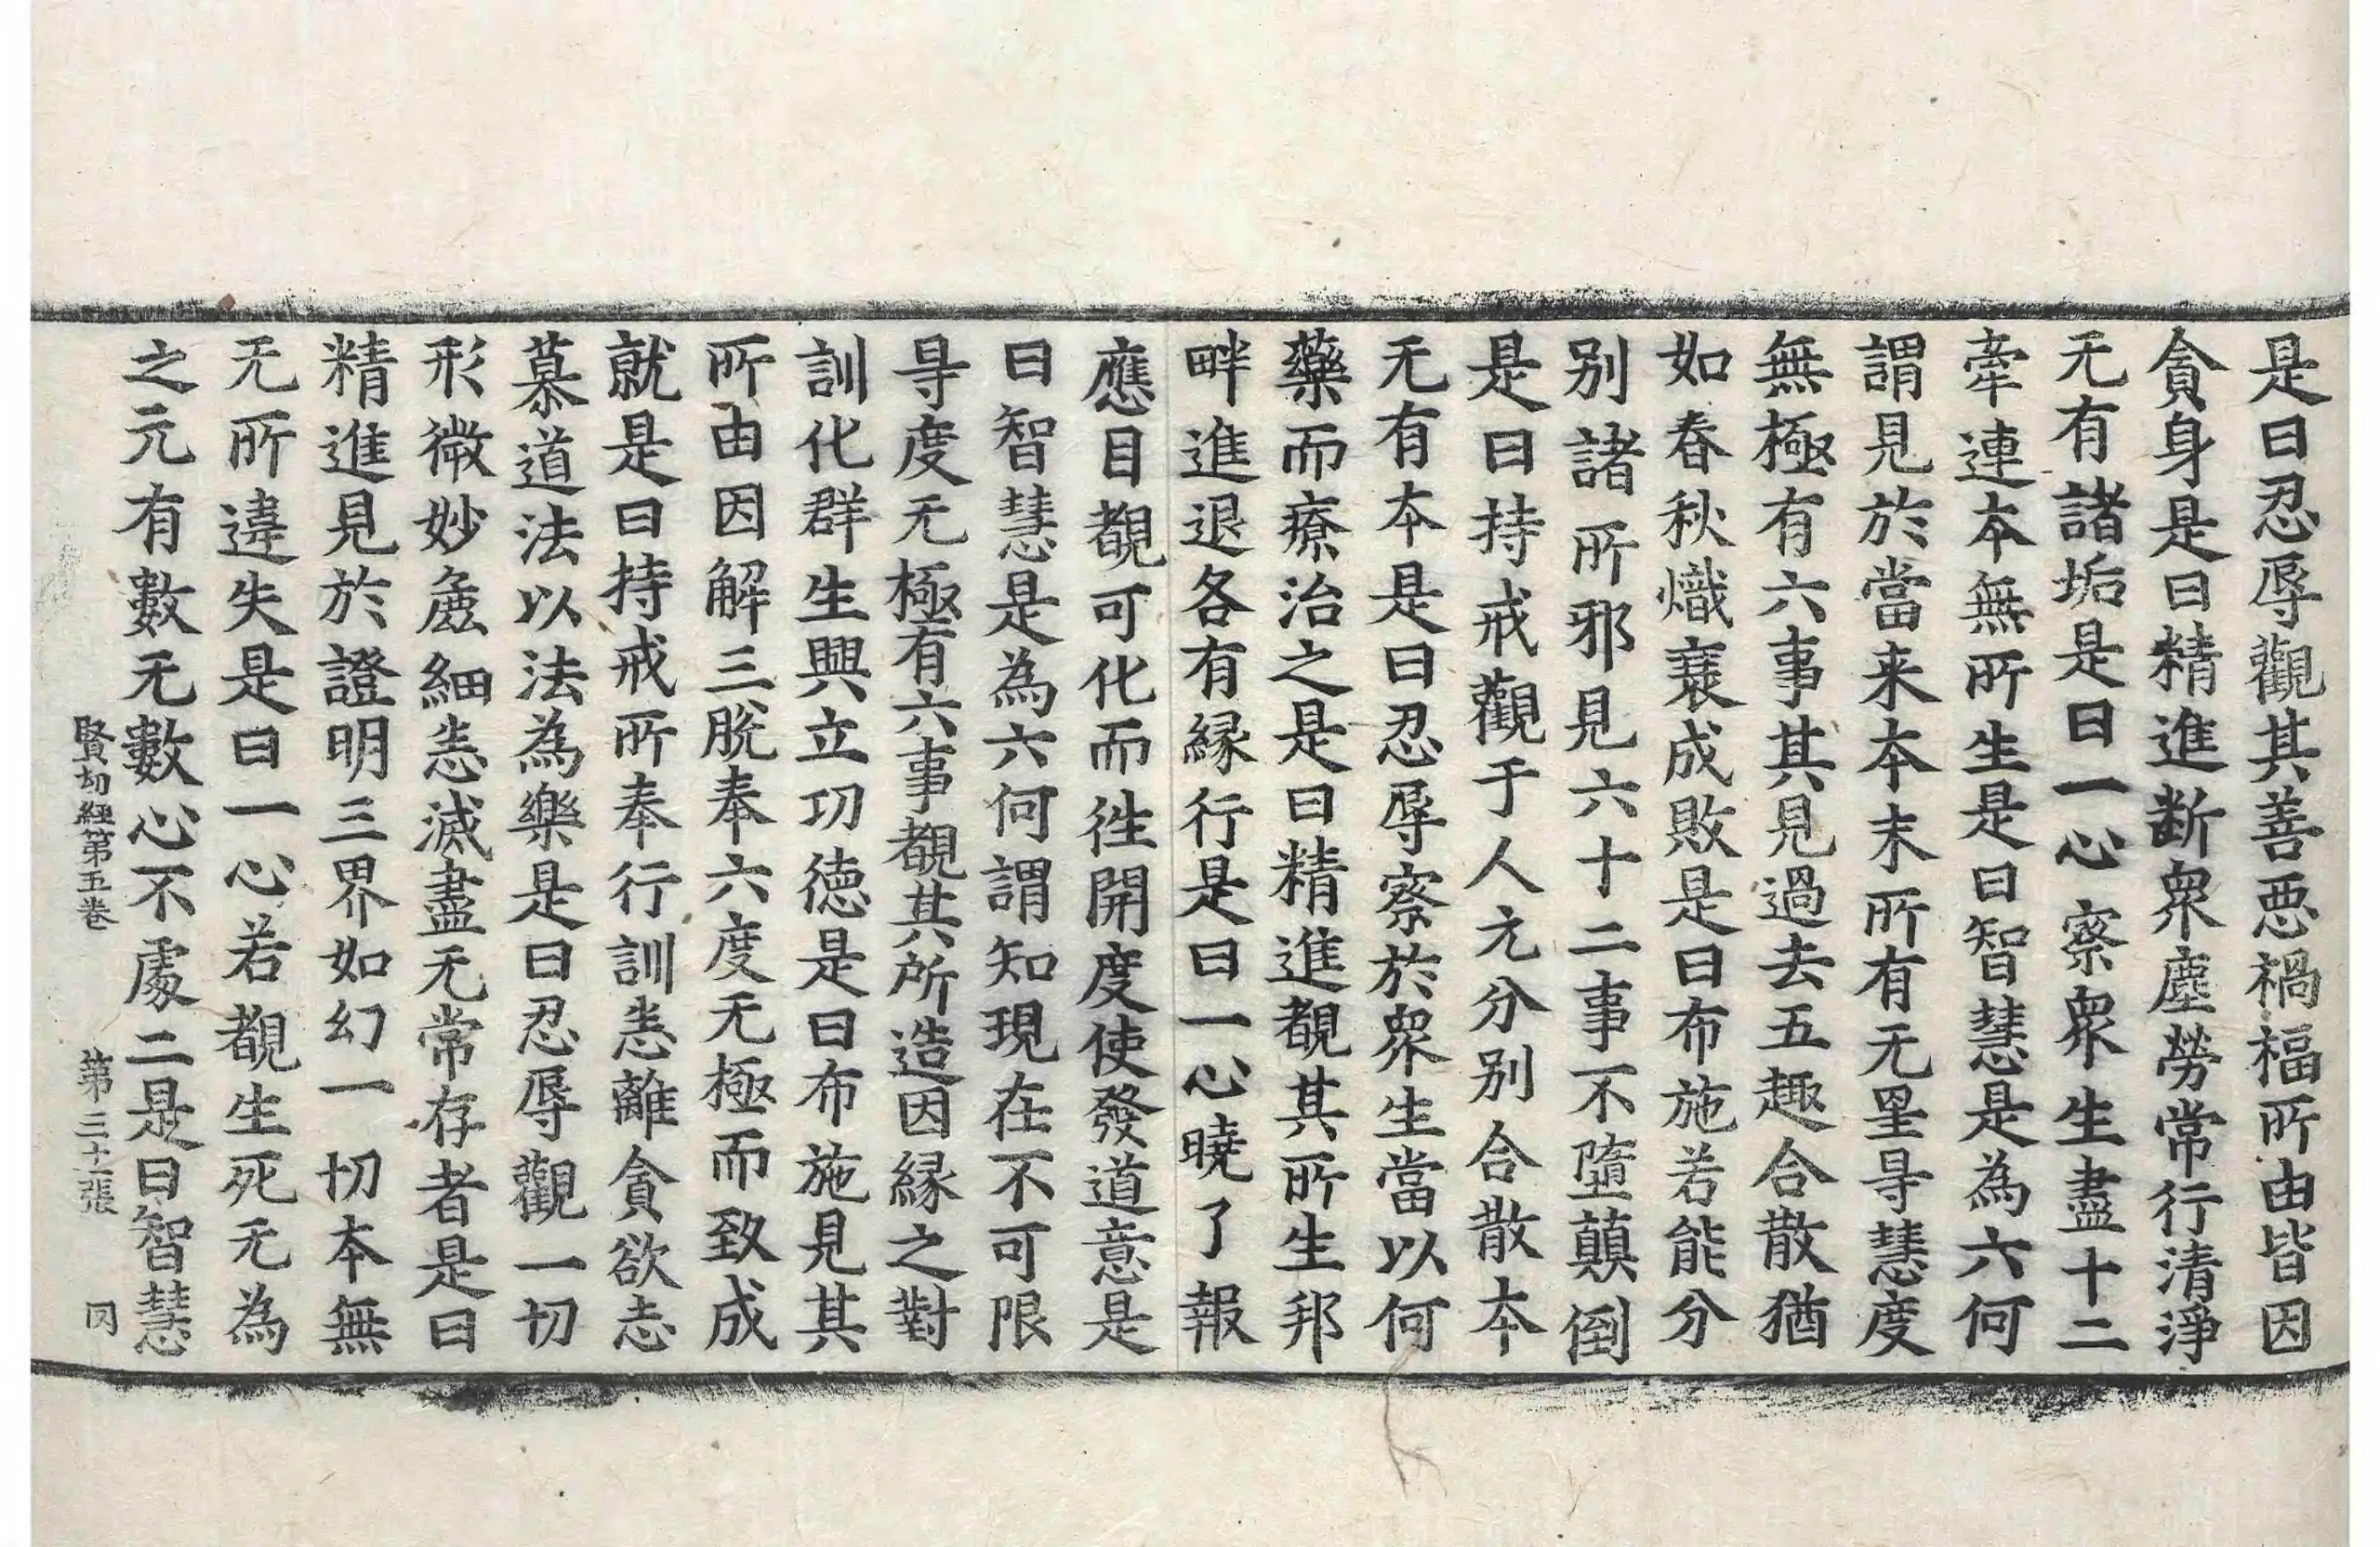 是曰忍辱觀其善惡禍福所由皆因
貪身是曰精進断衆塵勞常行清淨
无有諸垢是曰一心察衆生盡十二
牽連本無所生是曰智慧是為六何
謂見於當来本末所有无罣㝵慧度
無極有六事其見過去五趣合散猶
如春秋熾衰成敗是曰布施若能分
別諸所邪見六十二事不墮顛倒
是曰持戒觀于人元分別合散本
无有本是曰忍辱察於衆生當以何
藥而療治之是曰精進覩其所生邦
畔進退各有縁行是曰一心曉了報
應目覩可化而徃開度使發道意是
曰智慧是為六何謂知現在不可限
㝵度无極有六事覩其所造因縁之對
訓化群生興立功德是曰布施見其
所由因解三脫奉六度无極而致成
就是曰持戒所奉行訓恚離貪欲志
慕道法以法為樂是曰忍辱觀一切
形微妙麁細恚滅盡无常存者是曰
精進見於證明三界如幻一切本無
无所違失是曰一心若覩生死无為
之元有數无數心不處二是曰智慧
賢劫經第五卷 第三十張 冈